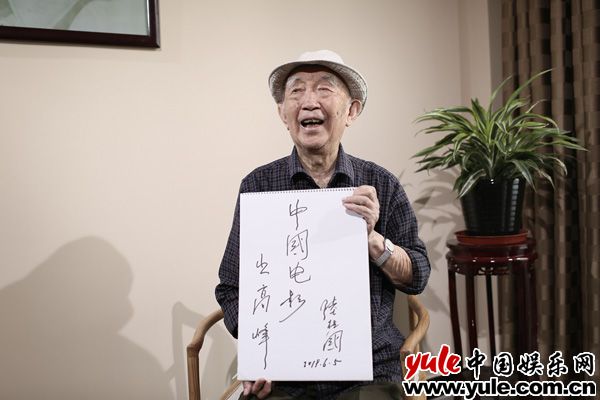 中國电影
出高峰
陸柱國
2019.6.5
yule中国娱乐网
www.yule.com.cn